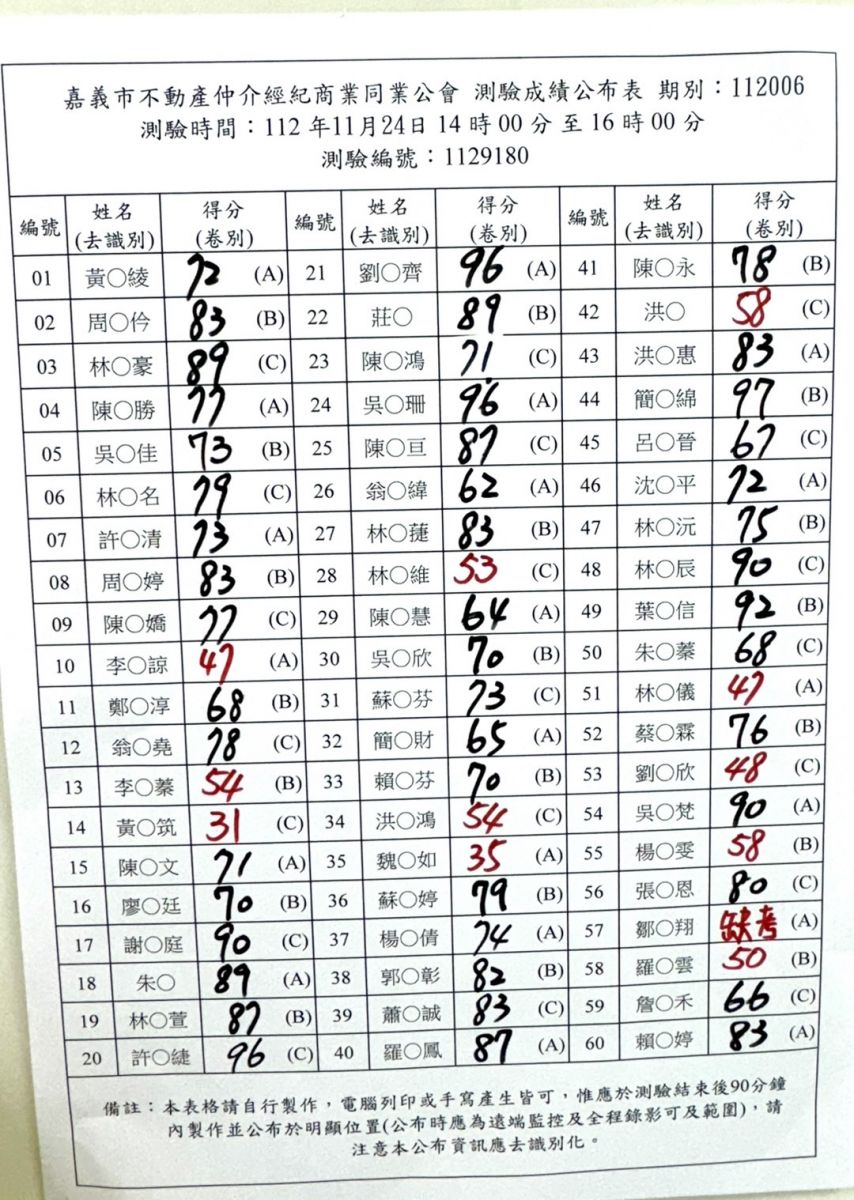 嘉義市不動產仲介經紀商業同業公會 測驗成績公布表 期別：112006
測驗時間：112 年11月24日 14 時 00 分 至 16 時 00 分
測驗編號：1129180
編號 姓名(去識別) 得分(卷別) 編號 姓名(去識別) 得分(卷別) 編號 姓名(去識別) 得分(卷別)
01 黃○綾 72 (A) 21 劉○齊 96 (A) 41 陳○永 78 (B)
02 周○伶 83 (B) 22 莊○ 89 (B) 42 洪○ 58 (C)
03 林○豪 89 (C) 23 陳○鴻 71 (C) 43 洪○惠 83 (A)
04 陳○勝 77 (A) 24 吳○珊 96 (A) 44 簡○綿 97 (B)
05 吳○佳 73 (B) 25 陳○亘 87 (C) 45 呂○晉 67 (C)
06 林○名 79 (C) 26 翁○緯 62 (A) 46 沈○平 72 (A)
07 許○清 73 (A) 27 林○蓮 83 (B) 47 林○沅 75 (B)
08 周○婷 83 (B) 28 林○維 53 (C) 48 林○辰 90 (C)
09 陳○嬌 77 (C) 29 陳○慧 64 (A) 49 葉○信 92 (B)
10 李○諒 47 (A) 30 吳○欣 70 (B) 50 朱○蓁 68 (C)
11 鄭○淳 68 (B) 31 蘇○芬 73 (C) 51 林○儀 47 (A)
12 翁○堯 78 (C) 32 簡○財 65 (A) 52 蔡○霖 76 (B)
13 李○蓁 54 (B) 33 賴○芬 70 (B) 53 劉○欣 48 (C)
14 黃○筑 31 (C) 34 洪○鴻 54 (C) 54 吳○梵 90 (A)
15 陳○文 71 (A) 35 魏○如 35 (A) 55 楊○雯 58 (B)
16 廖○廷 70 (B) 36 蘇○婷 79 (B) 56 張○恩 80 (C)
17 謝○庭 90 (C) 37 楊○倩 74 (A) 57 鄒○翔 缺考 (A)
18 朱○ 89 (A) 38 郭○彰 82 (B) 58 羅○雲 50 (B)
19 林○萱 87 (B) 39 蕭○誠 83 (C) 59 詹○禾 66 (C)
20 許○緁 96 (C) 40 羅○鳳 87 (A) 60 賴○婷 83 (A)
備註：本表格請自行製作，電腦列印或手寫產生皆可，惟應於測驗結束後90分鐘
內製作並公布於明顯位置(公布時應為遠端監控及全程錄影可及範圍)，請
注意本公布資訊應去識別化。